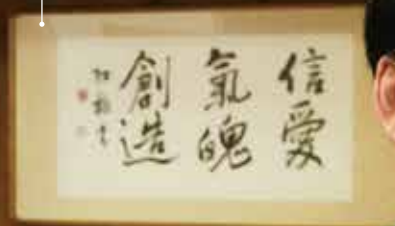 信愛
氣魄
創造